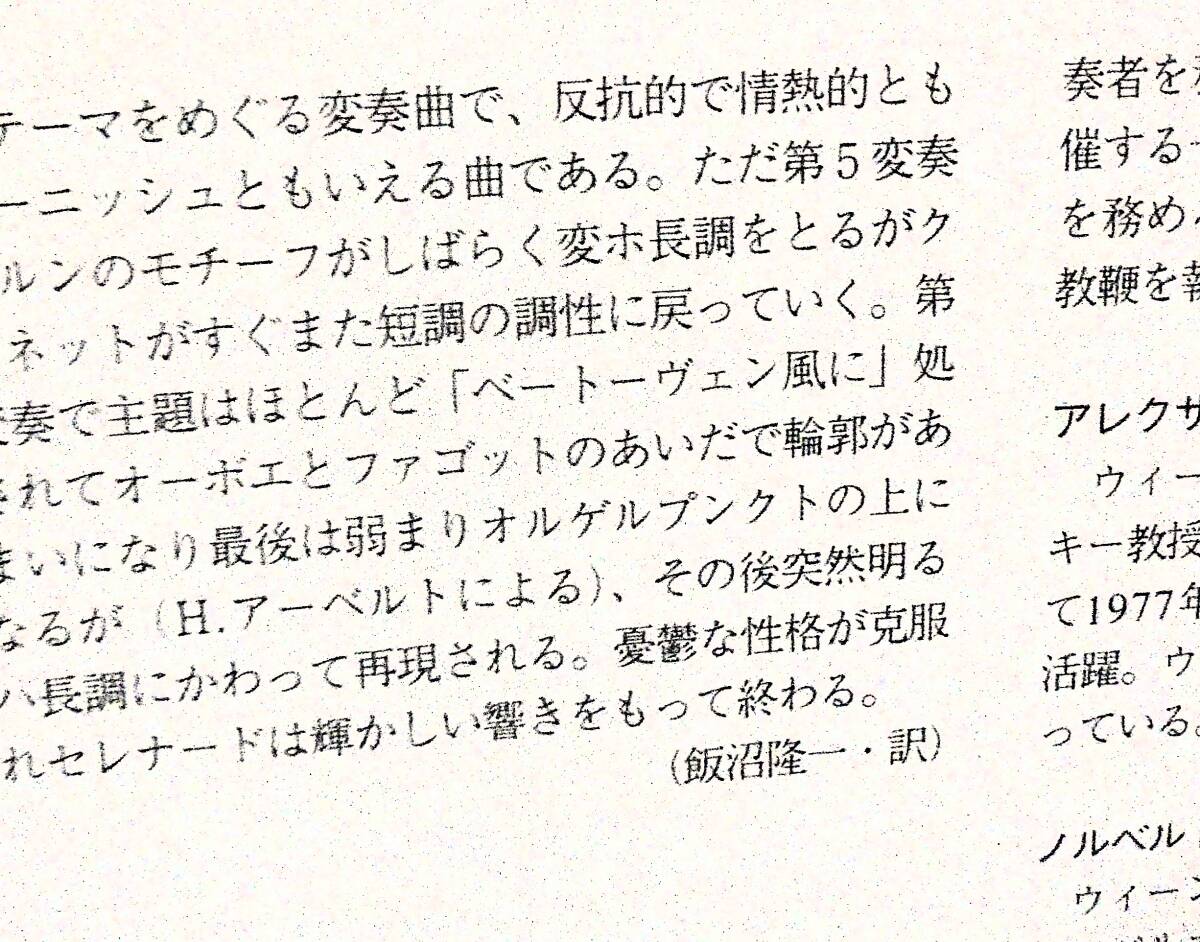 テーマをめぐる変奏曲で、反抗的で情熱的とも
ーニッシュともいえる曲である。ただ第5変奏
ルンのモチーフがしばらく変ホ長調をとるがク
ネットがすぐまた短調の調性に戻っていく。第
変奏で主題はほとんど「ベートーヴェン風に」処
されてオーボエとファゴットのあいだで輪郭があ
まいになり最後は弱まりオルゲルプンクトの上に
なるが（H.アーベルトによる）、その後突然明る
い長調にかわって再現される。憂鬱な性格が克服
れセレナードは輝かしい響きをもって終わる。
（飯沼隆一・訳）
奏者を
催する
を務め
教鞭を執
アレクサ
ウィー
キー教授
て1977年
活躍。ウ
っている。
ノルベル
ウィーン